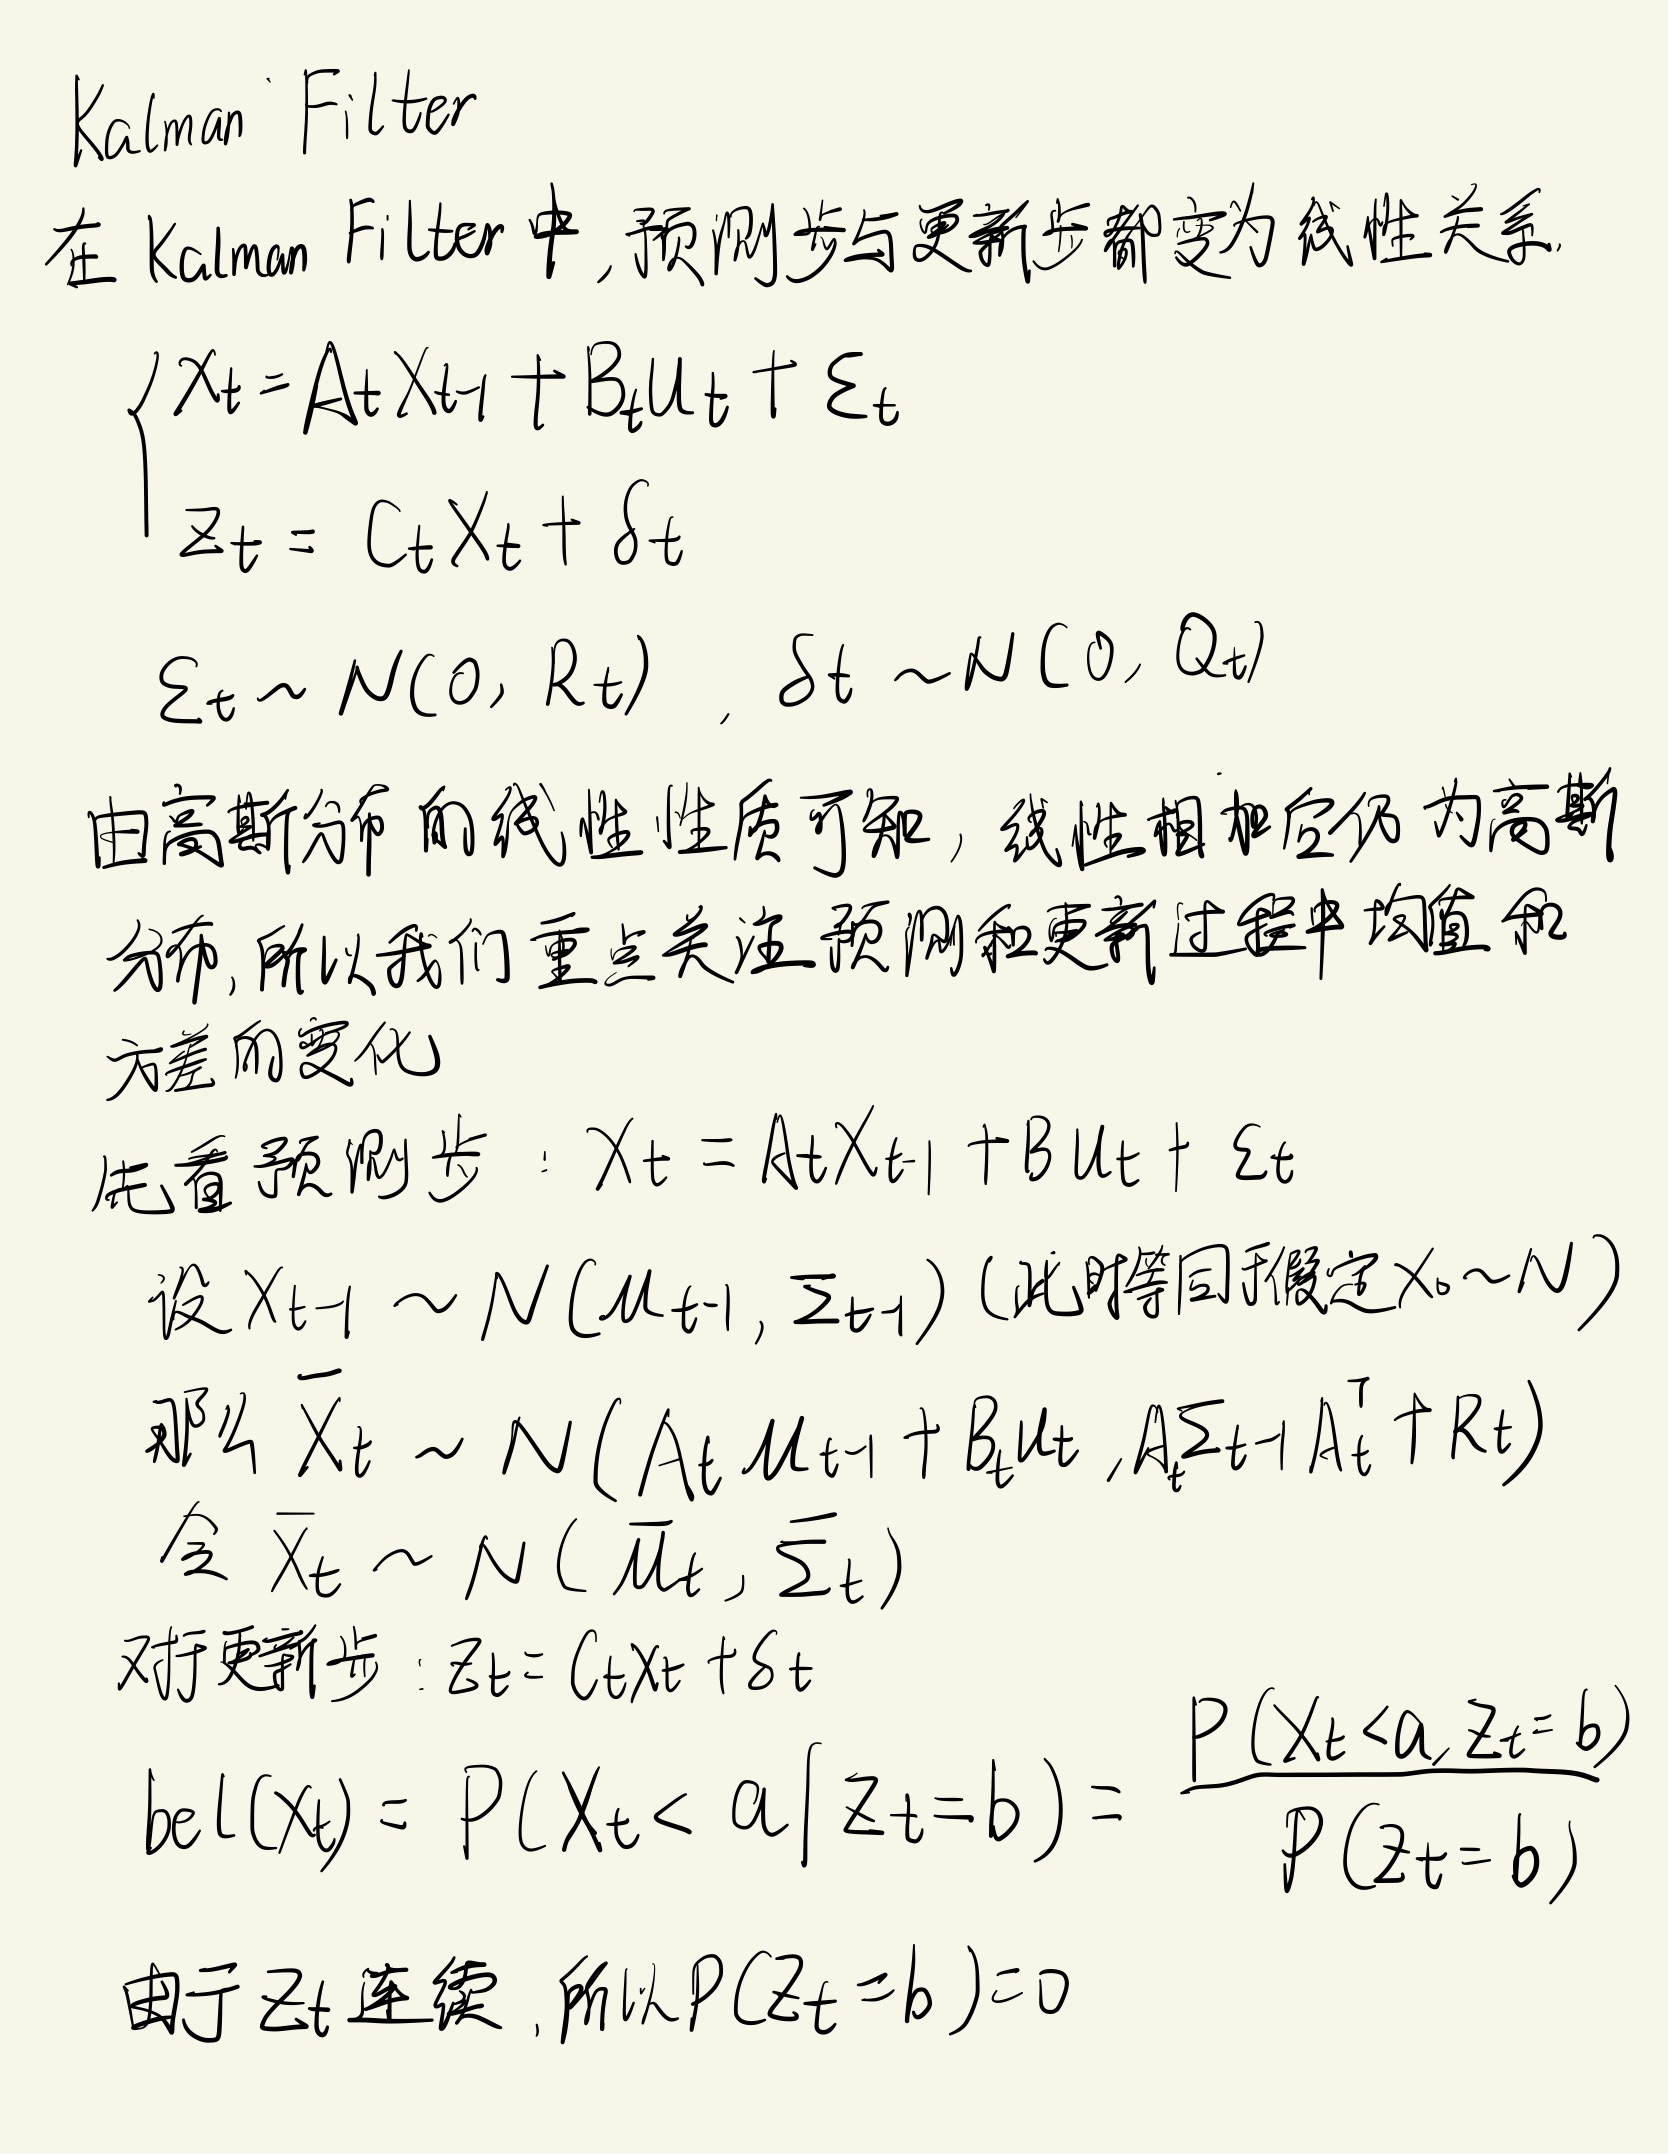 Kalman Filter
在 Kalman Filter中,预测步与更新步都变为线性关系.
Xt = AtXt-1 + BtUt + εt
Zt = CtXt + δt
εt ~ N(0, Rt) , δt ~ N(0, Qt)
由高斯分布的线性性质可知, 线性相加后仍为高斯
分布,所以我们重点关注预测和更新过程中均值和
方差的变化
先看预测步 : Xt = AtXt-1 + BUt + εt
设 Xt-1 ~ N(μt-1, Σt-1) (此时等同于假定X0~N)
那么 X̄t ~ N(Atμt-1 + BtUt, AtΣt-1At^T + Rt)
令 X̄t ~ N(μ̄t, Σ̄t)
对于更新步 : Zt = CtXt + δt
bel(Xt) = P(Xt < a | Zt = b) = P(Xt < a, Zt = b) / P(Zt = b)
由于Zt连续,所以P(Zt = b) = 0